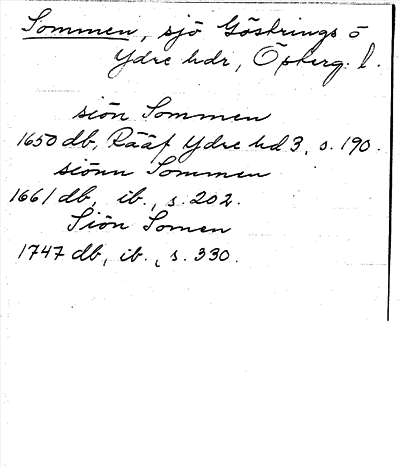 Sommen, sjö Göstrings o
Ydre hdr, Östergl.
siön Sommen
1650 db, Rääf Ydre hd 3, s. 190.
siönn Sommen
1661 db, ib., s. 202.
Siön Somen
1747 db, ib., s. 330.